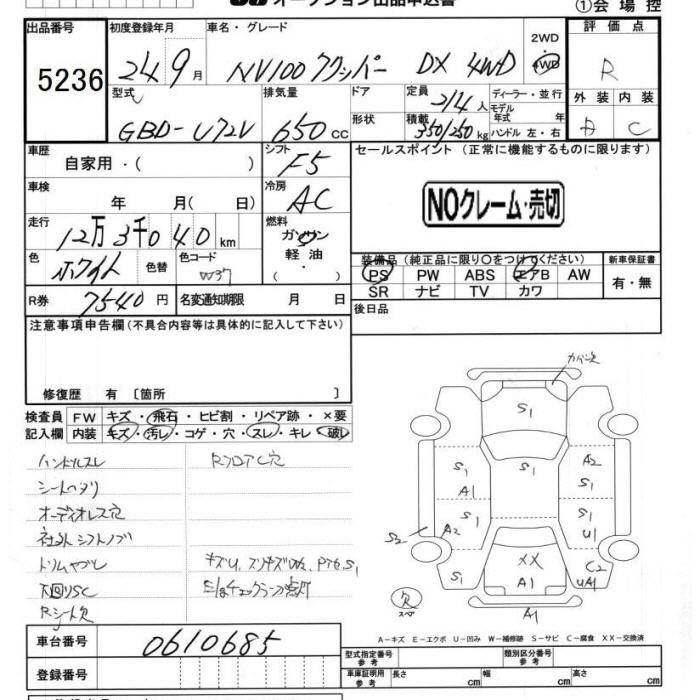 オークション出品申込書
①会場控
出品番号 初度登録年月 車名・グレード 2WD 4WD 評価点
5236 24 9月 NV100クリッパー DX 4WD R
型式 排気量 ドア 定員 2/4人 ディーラー・並行 外装 内装
GBD-U72V 650cc 形状 積載 350/250kg モデル年式 年 ハンドル 左・右 C
車歴 シフト セールスポイント (正常に機能するものに限ります)
自家用・( ) F5
車検 冷房 NOクレーム・売切
年 月( 日) AC
走行 燃料
12万3千040km ガソリン 軽油・
色 色コード 装備品 (純正品に限り○をつけてください) 新車保証書
ホワイト 色替 W37 PS PW ABS エアB AW 有・無
R券 7540円 名変通知期限 月 日 SR ナビ TV カワ
注意事項申告欄(不具合内容等は具体的に記入して下さい) 後日品
修復歴 有〔箇所 〕
検査員 FW キズ・飛石・ヒビ割・リペア跡・×要
記入欄 内装 キズ・汚レ・コゲ・穴・スレ・キレ・破レ
カバー欠
ハンドルスレ RフロアC穴
S1
シートヘタリ
S1 S1 A2
A1 S1
オーディオレス穴
S1 S1
社外シフトノブ
S2 A2 U1
トリムヤブレ キズU、スリキズ
XX C2
下回りSC E/gチェックランプ点灯
S1 A1 UA1
Rシート欠
欠 スペア A1
車台番号 0610685
A-キズ E-エクボ U-凹み W-補修跡 S-サビ C-腐食 XX-交換済
登録番号 型式指定番号 参考 類別区分番号 参考
車庫証明用 参考 長さ cm 幅 cm 高さ cm